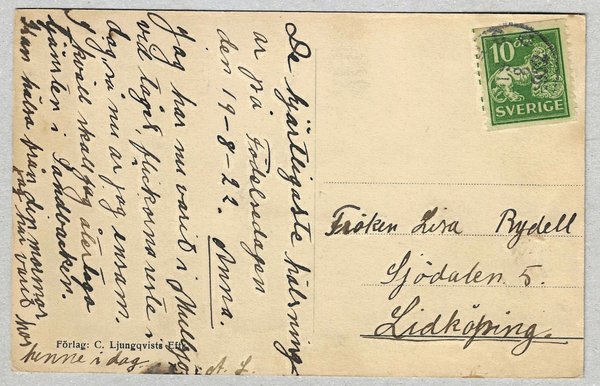 De hjärtligaste hälsning
ar på Födelsedagen
den 19-8-22. Anna.
Jag har nu varit i Mullsjö
vid taget, flickorna reste i
dag, så nu är jag ensam.
I kväll skall jag återtaga
tjänsten i Sandbäcken.
Kan hälsa från din mormor
jag har varit hos
henne i dag
A. L.
Förlag: C. Ljungqvists Eftr.
10
SVERIGE
Fröken Lisa Rydell
Sjödalen 5.
Lidköping.